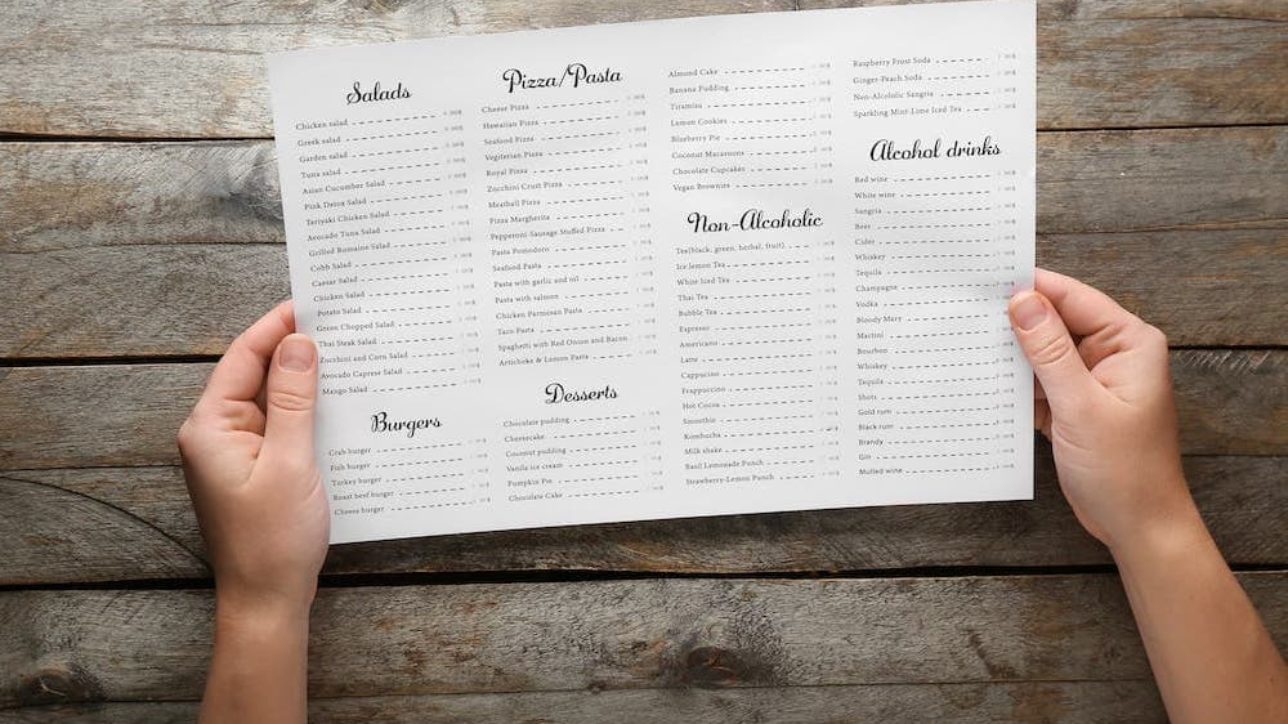 Salads
Chicken salad
Greek salad
Garden salad
Tuna salad
Asian Cucumber Salad
Pink Detox Salad
Teriyaki Chicken Salad
Avocado Tuna Salad
Grilled Romaine Salad
Cobb Salad
Caesar Salad
Chicken Salad
Potato Salad
Green Chopped Salad
Thai Steak Salad
Zucchini and Corn Salad
Avocado Caprese Salad
Mango Salad
Burgers
Crab burger
Fish burger
Turkey burger
Roast beef burger
Cheese burger
Pizza/Pasta
Cheese Pizza
Hawaiian Pizza
Seafood Pizza
Vegiterian Pizza
Royal Pizza
Zucchini Crust Pizza
Meatball Pizza
Pizza Margherita
Pepperoni-Sausage Stuffed Pizza
Pasta Pomodoro
Seafood Pasta
Pasta with garlic and oil
Pasta with salmon
Chicken Parmesan Pasta
Taco Pasta
Spaghetti with Red Onion and Bacon
Artichoke & Lemon Pasta
Desserts
Chocolate pudding
Cheesecake
Coconut pudding
Vanilla ice cream
Pumpkin Pie
Chocolate Cake
Almond Cake
Banana Pudding
Tiramisu
Lemon Cookies
Blueberry Pie
Coconut Macaroons
Chocolate Cupcakes
Vegan Brownies
Non-Alcoholic
Tea(black, green, herbal, fruit)
Ice lemon Tea
White Iced Tea
Thai Tea
Bubble Tea
Espresso
Americano
Latte
Cappucino
Frappuccino
Hot Cocoa
Smoothie
Kombucha
Milk shake
Basil Lemonade Punch
Strawberry-Lemon Punch
Raspberry Frost Soda
Ginger-Peach Soda
Non-Alcoholic Sangria
Sparkling Mint-Lime Iced Tea
Alcohol drinks
Red wine
White wine
Sangria
Beer
Cider
Whiskey
Tequila
Champagne
Vodka
Bloody Mary
Martini
Bourbon
Whiskey
Tequila
Shots
Gold rum
Black rum
Brandy
Gin
Mulled wine